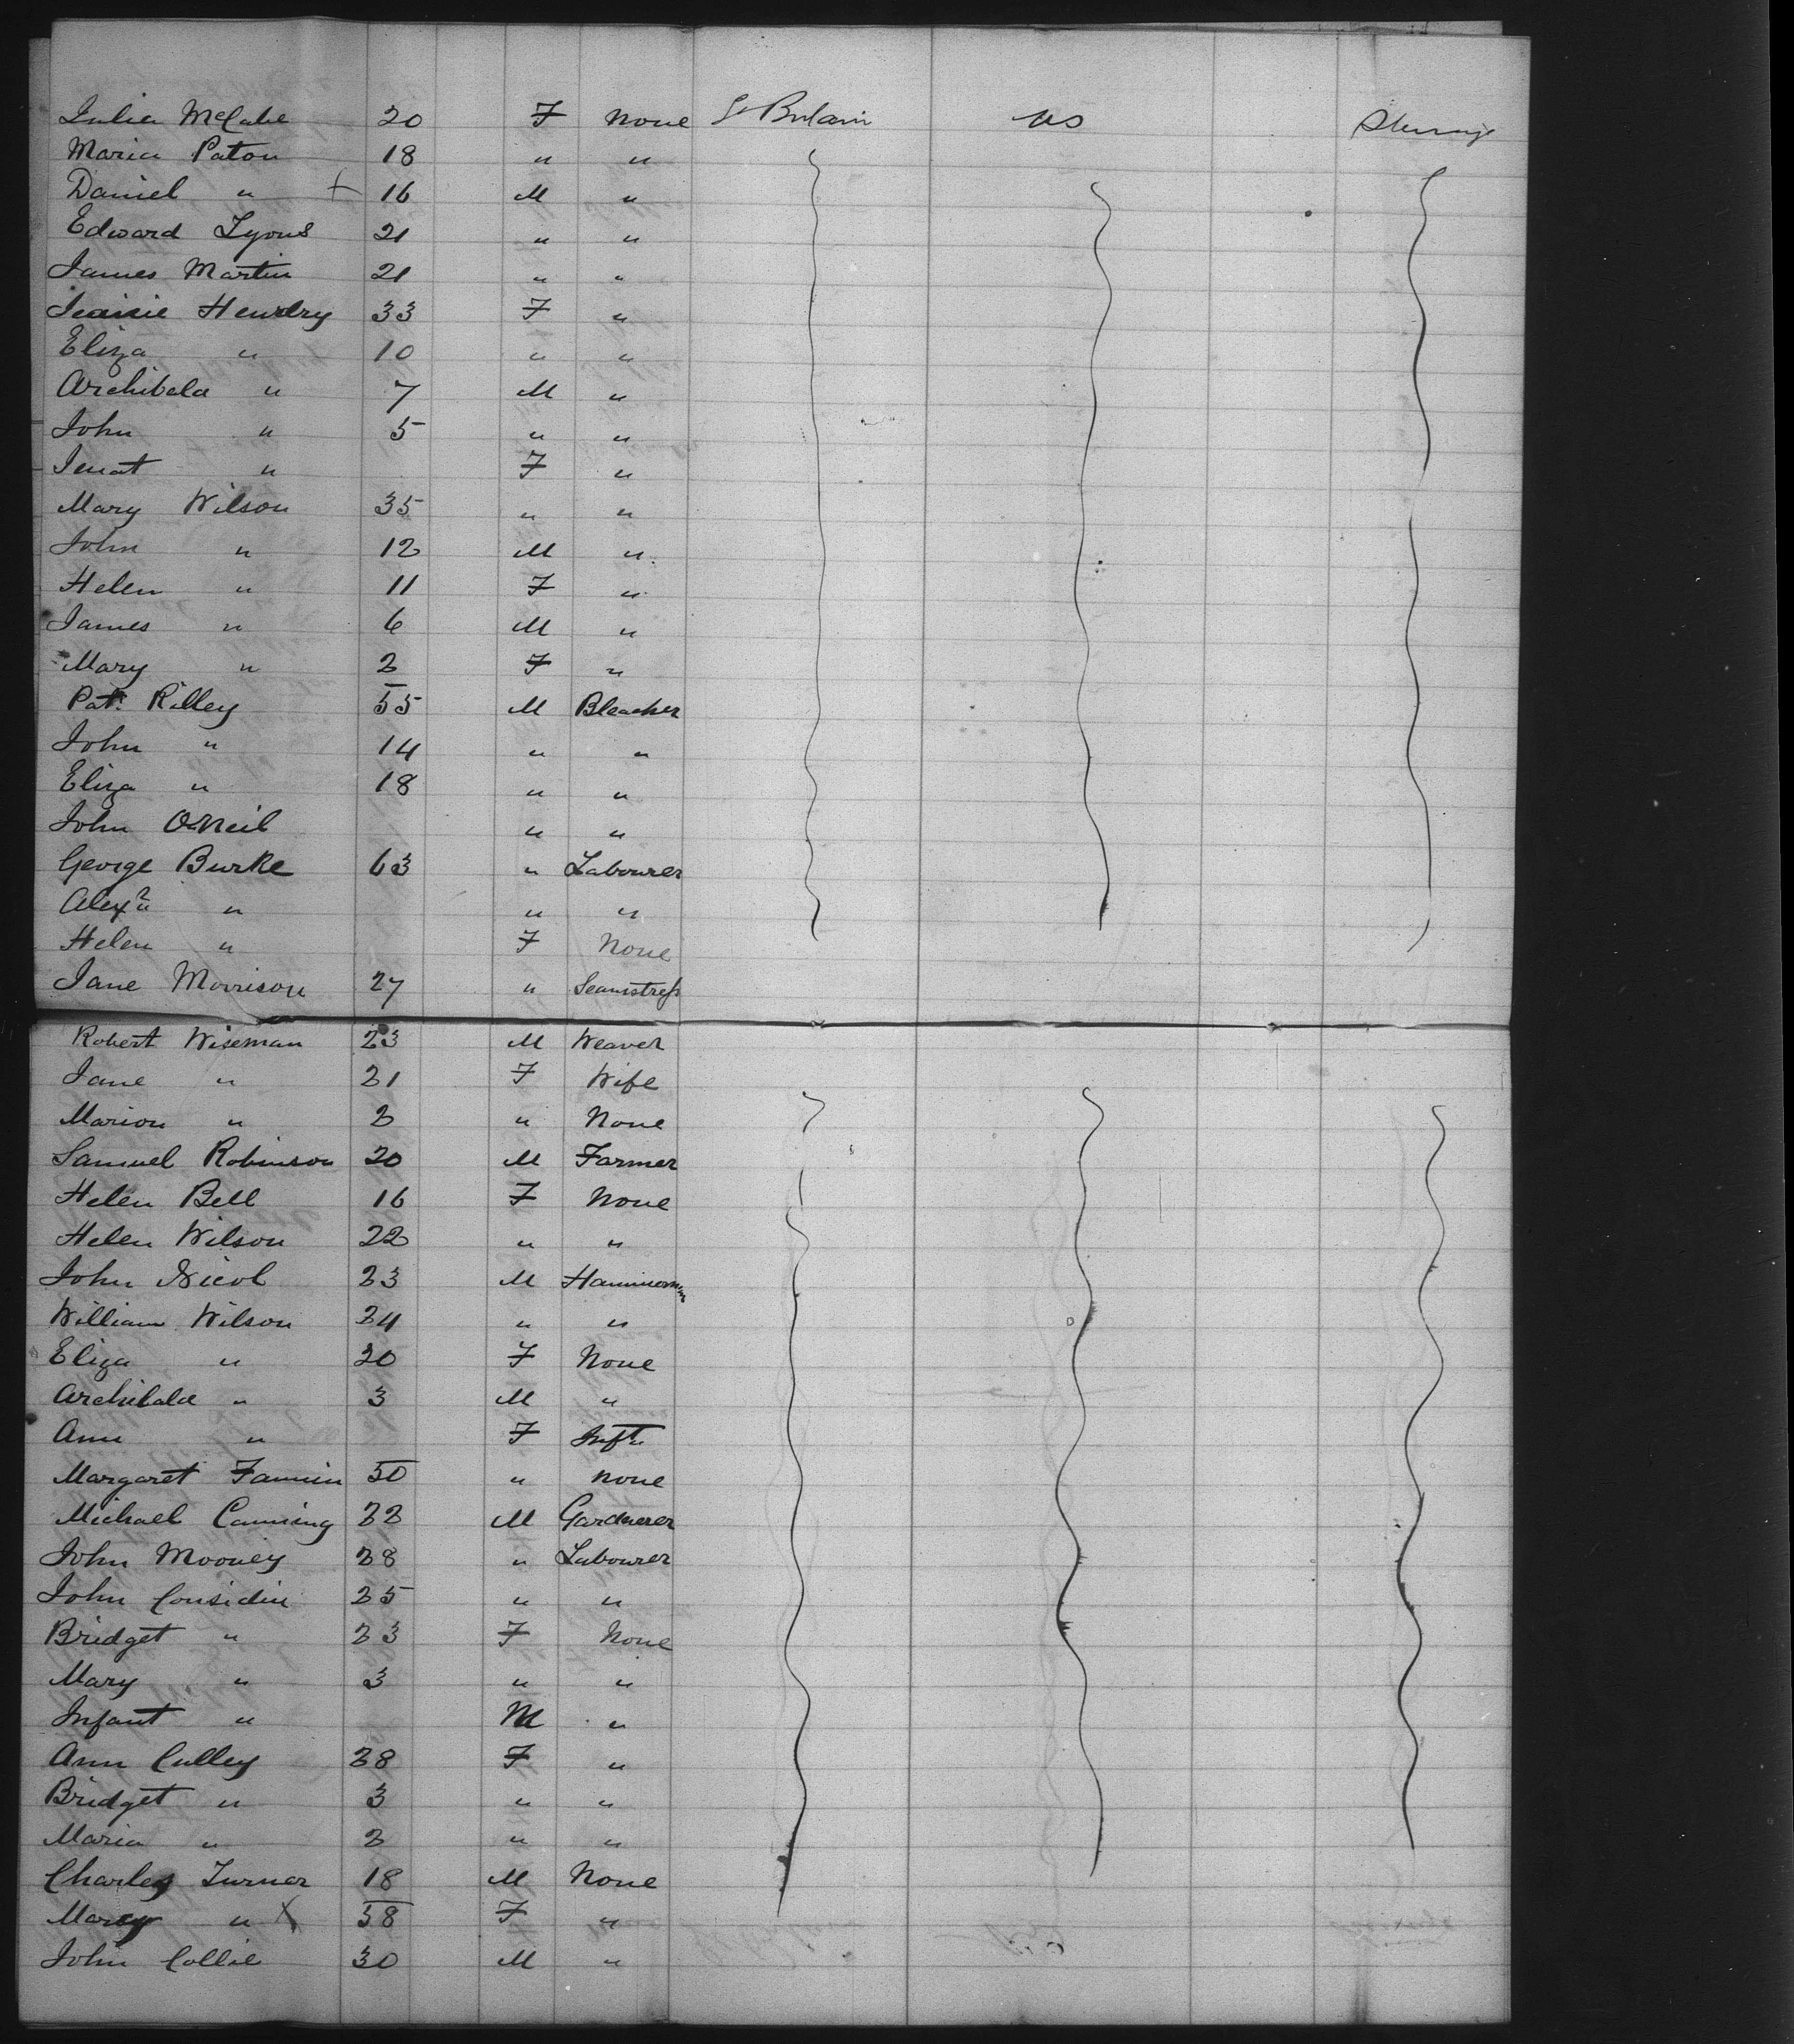 Julia McCabe 20 F None Gt Britain US Steerage
Maria Paton 18 " "
Daniel " + 16 M "
Edward Lyons 21 " "
James Martin 21 " "
Jeanie Hendry 33 F "
Eliza " 10 " "
Archibald " 7 M "
John " 5 " "
Jenat " F "
Mary Wilson 35 " "
John " 12 M "
Helen " 11 F "
James " 6 M "
Mary " 2 F "
Pat. Rilley 55 M Bleacher
John " 14 " "
Eliza " 18 " "
John ONeil " "
George Burke 63 " Labourer
Alexr " " "
Helen " F None
Jane Morrison 27 " Seamstress
Robert Wiseman 23 M Weaver
Jane " 21 F Wife
Marion " 2 " None
Samuel Robinson 20 M Farmer
Helen Bell 16 F None
Helen Wilson 22 " "
John Nicol 23 M Hammerman
William Wilson 24 " "
Eliza " 20 F None
Archibald " 3 M "
Ann " F Inft
Margaret Fannin 50 " none
Michael Canning 22 M Gardnerer
John Mooney 28 " Labourer
John Considin 25 " "
Bridget " 23 F None
Mary " 3 " "
Infant " M "
Ann Culley 28 F "
Bridget " 3 " "
Maria " 2 " "
Charles Turner 18 M None
Mary " X 58 F "
John Collie 30 M "